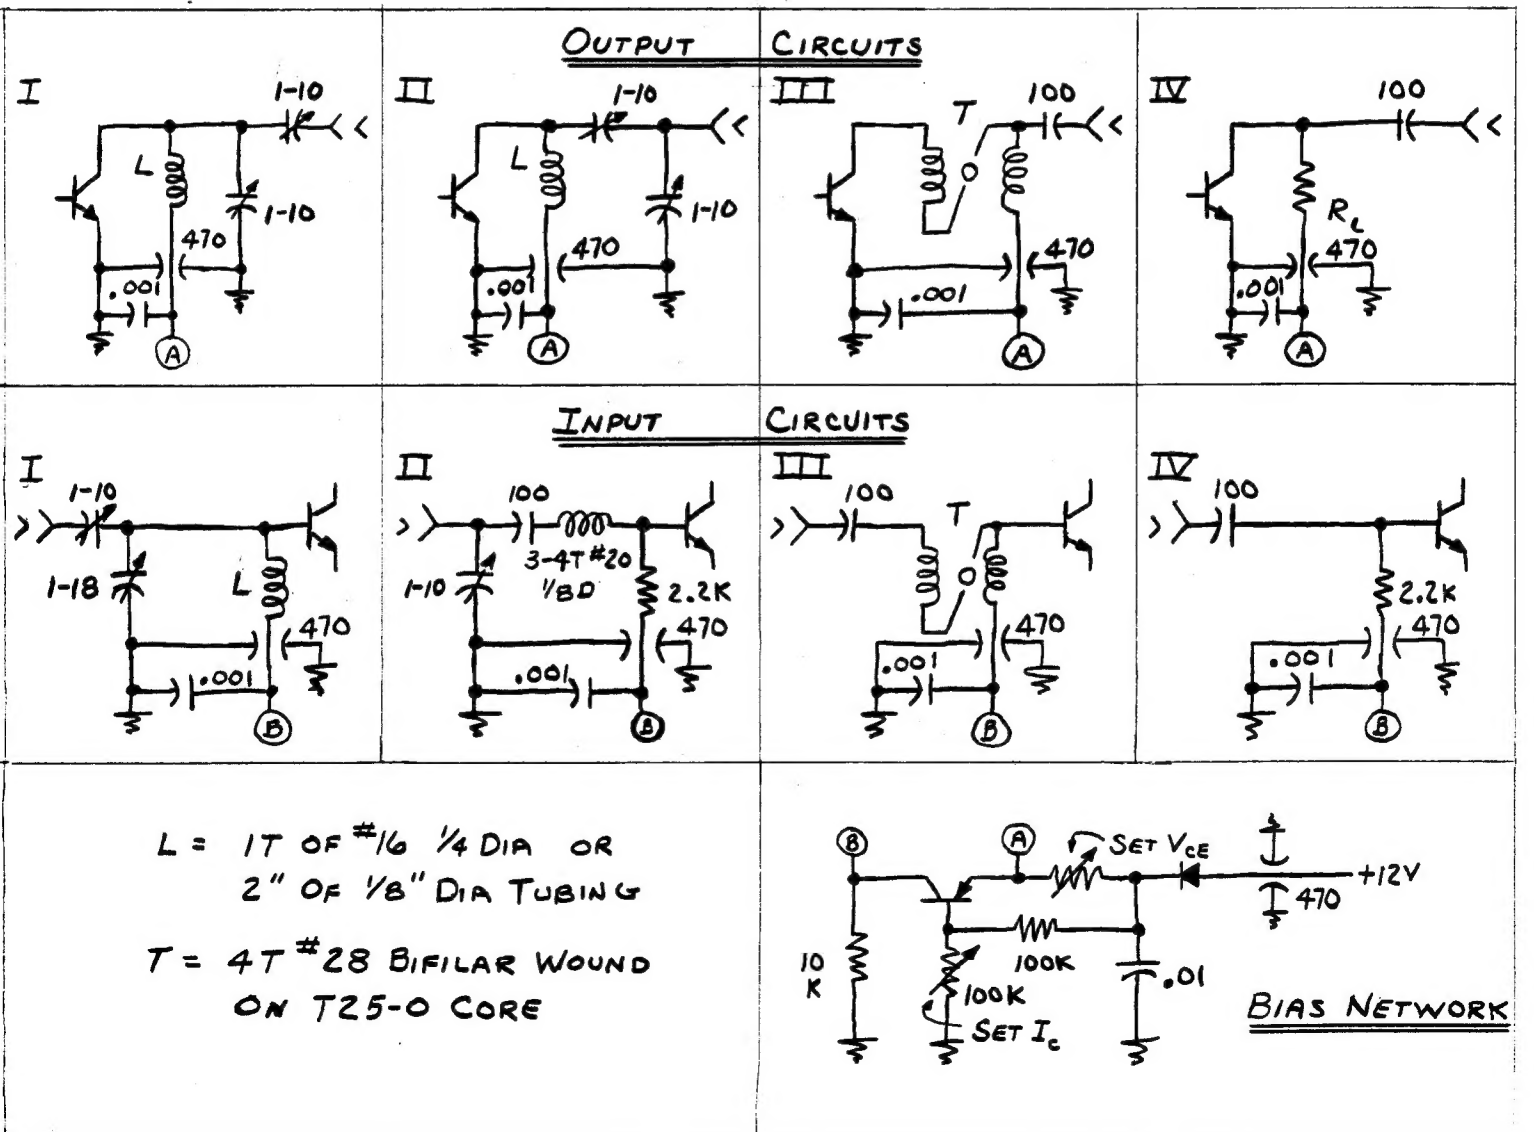 OUTPUT CIRCUITS
I
1-10
L
1-10
470
.001
A
II
1-10
L
1-10
470
.001
A
III
T
100
470
.001
A
IV
100
RL
470
.001
A
INPUT CIRCUITS
I
1-10
1-18
L
470
.001
B
II
100
3-4T #20
1/8 D
1-10
2.2K
470
.001
B
III
100
T
470
.001
B
IV
100
2.2K
470
.001
B
L = 1T OF #16 1/4 DIA OR
2" OF 1/8" DIA TUBING
T = 4T #28 BIFILAR WOUND
ON T25-0 CORE
B
A
SET VCE
+12V
470
10
K
100K
100K
.01
SET Ic
BIAS NETWORK